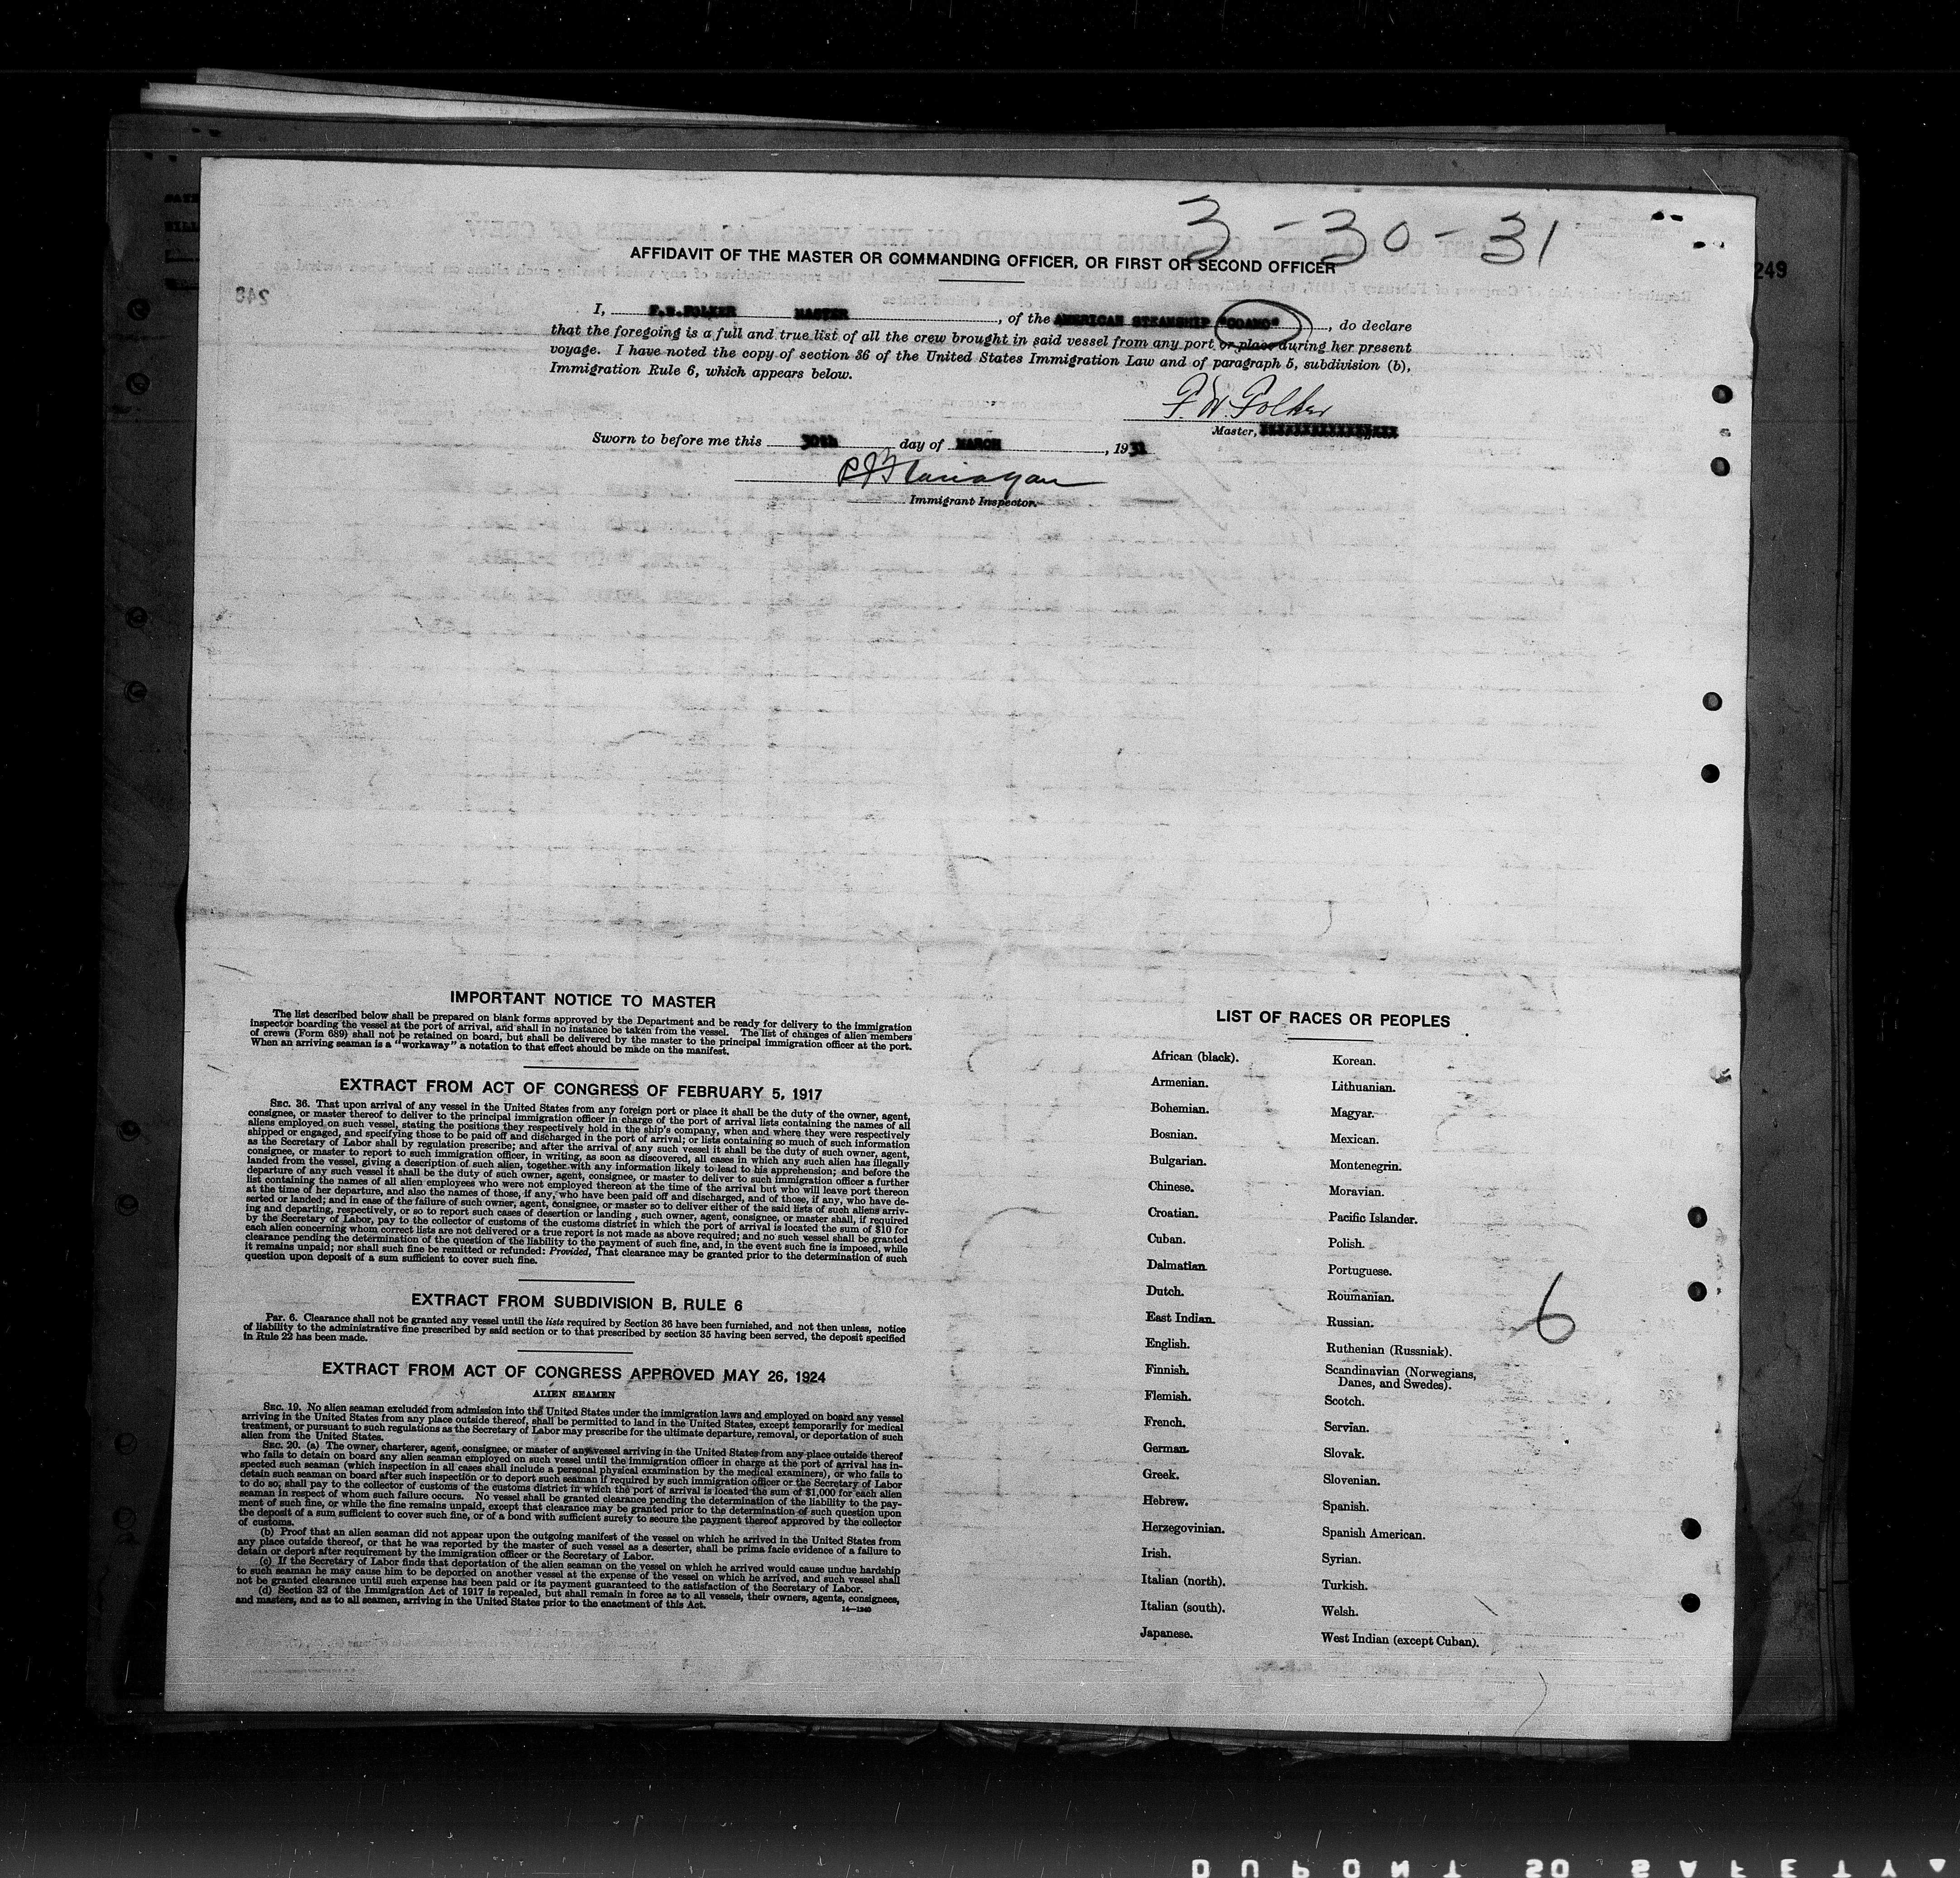 3-30-31
AFFIDAVIT OF THE MASTER OR COMMANDING OFFICER, OR FIRST OR SECOND OFFICER
249
248
I, F.W.FOLKER MASTER, of the AMERICAN STEAMSHIP "COAMO", do declare
that the foregoing is a full and true list of all the crew brought in said vessel from any port or place during her present
voyage. I have noted the copy of section 36 of the United States Immigration Law and of paragraph 5, subdivision (b),
Immigration Rule 6, which appears below.
F. W. Folker
Master,
Sworn to before me this 30th day of MARCH, 1931
Flanagan
Immigrant Inspector.
IMPORTANT NOTICE TO MASTER
The list described below shall be prepared on blank forms approved by the Department and be ready for delivery to the immigration
inspector boarding the vessel at the port of arrival, and shall in no instance be taken from the vessel. The list of changes of alien members
of crews (Form 689) shall not be retained on board, but shall be delivered by the master to the principal immigration officer at the port.
When an arriving seaman is a "workaway" a notation to that effect should be made on the manifest.
EXTRACT FROM ACT OF CONGRESS OF FEBRUARY 5, 1917
SEC. 36. That upon arrival of any vessel in the United States from any foreign port or place it shall be the duty of the owner, agent,
consignee, or master thereof to deliver to the principal immigration officer in charge of the port of arrival lists containing the names of all
aliens employed on such vessel, stating the positions they respectively hold in the ship's company, when and where they were respectively
shipped or engaged, and specifying those to be paid off and discharged in the port of arrival; or lists containing so much of such information
as the Secretary of Labor shall by regulation prescribe; and after the arrival of any such vessel it shall be the duty of such owner, agent,
consignee, or master to report to such immigration officer, in writing, as soon as discovered, all cases in which any such alien has illegally
landed from the vessel, giving a description of such alien, together with any information likely to lead to his apprehension; and before the
departure of any such vessel it shall be the duty of such owner, agent, consignee, or master to deliver to such immigration officer a further
list containing the names of all alien employees who were not employed thereon at the time of the arrival but who will leave port thereon
at the time of her departure, and also the names of those, if any, who have been paid off and discharged, and of those, if any, who have de-
serted or landed; and in case of the failure of such owner, agent, consignee, or master so to deliver either of the said lists of such aliens arriv-
ing and departing, respectively, or so to report such cases of desertion or landing, such owner, agent, consignee, or master shall, if required
by the Secretary of Labor, pay to the collector of customs of the customs district in which the port of arrival is located the sum of $10 for
each alien concerning whom correct lists are not delivered or a true report is not made as above required; and no such vessel shall be granted
clearance pending the determination of the question of the liability to the payment of such fine, and, in the event such fine is imposed, while
it remains unpaid; nor shall such fine be remitted or refunded: Provided, That clearance may be granted prior to the determination of such
question upon deposit of a sum sufficient to cover such fine.
EXTRACT FROM SUBDIVISION B, RULE 6
Par. 6. Clearance shall not be granted any vessel until the lists required by Section 36 have been furnished, and not then unless, notice
of liability to the administrative fine prescribed by said section or to that prescribed by section 35 having been served, the deposit specified
in Rule 22 has been made.
EXTRACT FROM ACT OF CONGRESS APPROVED MAY 26, 1924
ALIEN SEAMEN
SEC. 19. No alien seaman excluded from admission into the United States under the immigration laws and employed on board any vessel
arriving in the United States from any place outside thereof, shall be permitted to land in the United States, except temporarily for medical
treatment, or pursuant to such regulations as the Secretary of Labor may prescribe for the ultimate departure, removal, or deportation of such
alien from the United States.
SEC. 20. (a) The owner, charterer, agent, consignee, or master of any vessel arriving in the United States from any place outside thereof
who fails to detain on board any alien seaman employed on such vessel until the immigration officer in charge at the port of arrival has in-
spected such seaman (which inspection in all cases shall include a personal physical examination by the medical examiners), or who fails to
detain such seaman on board after such inspection or to deport such seaman if required by such immigration officer or the Secretary of Labor
to do so, shall pay to the collector of customs of the customs district in which the port of arrival is located the sum of $1,000 for each alien
seaman in respect of whom such failure occurs. No vessel shall be granted clearance pending the determination of the liability to the pay-
ment of such fine, or while the fine remains unpaid, except that clearance may be granted prior to the determination of such question upon
the deposit of a sum sufficient to cover such fine, or of a bond with sufficient surety to secure the payment thereof approved by the collector
of customs.
(b) Proof that an alien seaman did not appear upon the outgoing manifest of the vessel on which he arrived in the United States from
any place outside thereof, or that he was reported by the master of such vessel as a deserter, shall be prima facie evidence of a failure to
detain or deport after requirement by the immigration officer or the Secretary of Labor.
(c) If the Secretary of Labor finds that deportation of the alien seaman on the vessel on which he arrived would cause undue hardship
to such seaman he may cause him to be deported on another vessel at the expense of the vessel on which he arrived, and such vessel shall
not be granted clearance until such expense has been paid or its payment guaranteed to the satisfaction of the Secretary of Labor.
(d) Section 32 of the Immigration Act of 1917 is repealed, but shall remain in force as to all vessels, their owners, agents, consignees,
and masters, and as to all seamen, arriving in the United States prior to the enactment of this Act.
14—1240
LIST OF RACES OR PEOPLES
African (black).
Armenian.
Bohemian.
Bosnian.
Bulgarian.
Chinese.
Croatian.
Cuban.
Dalmatian.
Dutch.
East Indian.
English.
Finnish.
Flemish.
French.
German.
Greek.
Hebrew.
Herzegovinian.
Irish.
Italian (north).
Italian (south).
Japanese.
Korean.
Lithuanian.
Magyar.
Mexican.
Montenegrin.
Moravian.
Pacific Islander.
Polish.
Portuguese.
Roumanian.
Russian.
Ruthenian (Russniak).
Scandinavian (Norwegians,
Danes, and Swedes).
Scotch.
Servian.
Slovak.
Slovenian.
Spanish.
Spanish American.
Syrian.
Turkish.
Welsh.
West Indian (except Cuban).
6
DUPONT SAFETY